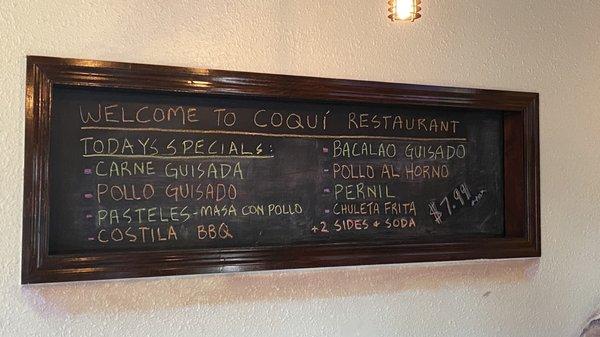 WELCOME TO COQUÍ RESTAURANT
TODAYS SPECIALS:
- CARNE GUISADA
- POLLO GUISADO
- PASTELES - MASA CON POLLO
- COSTILA BBQ
- BACALAO GUISADO
- POLLO AL HORNO
- PERNIL
- CHULETA FRITA
+2 SIDES & SODA
$7.99